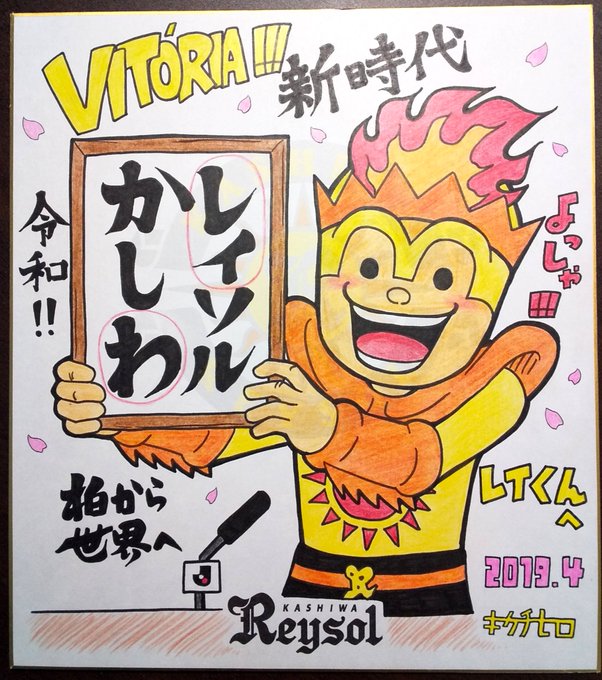 VITÓRIA!!!
新時代
レイソル
かしわ
令和!!
よっしゃ!!!
柏から
世界へ
レイくんへ
J
R
KASHIWA
Reysol
2019.4
キクチヒロ